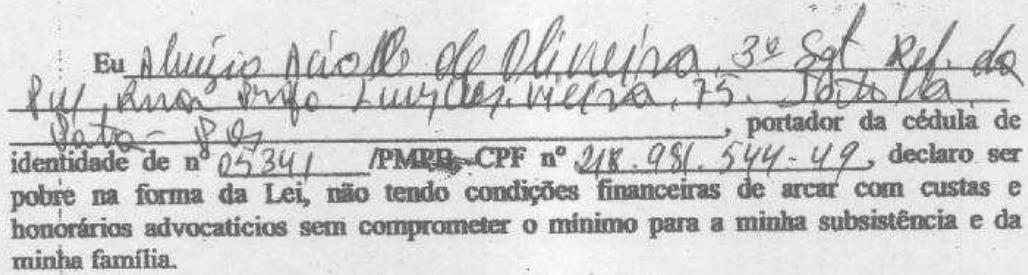 Eu Aluizio Aciolly de Oliveira, 3º Sgt Ref. da
PM, 75.
, portador da cédula de
identidade de nº 05341 /PMPB, CPF nº 218.981.544-49, declaro ser
pobre na forma da Lei, não tendo condições financeiras de arcar com custas e
honorários advocatícios sem comprometer o mínimo para a minha subsistência e da
minha família.